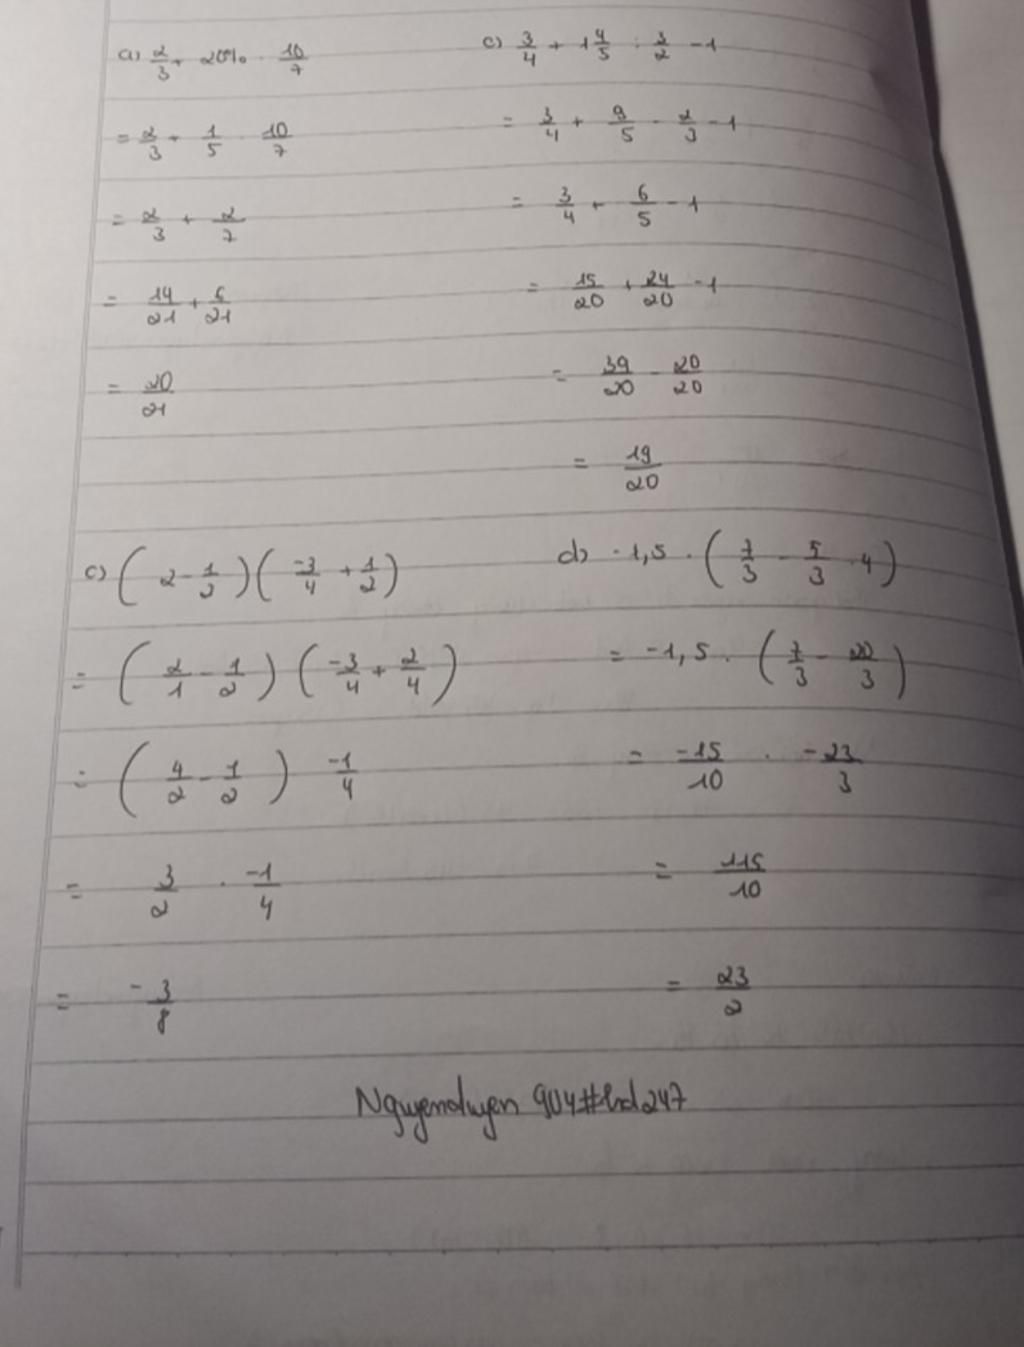 a) 2/3 + 20% . 10/7
= 2/3 + 1/5 . 10/7
= 2/3 + 2/7
= 14/21 + 6/21
= 20/21
c) 3/4 + 1 4/5 : 3/2 - 1
= 3/4 + 9/5 . 2/3 - 1
= 3/4 + 6/5 - 1
= 15/20 + 24/20 - 1
= 39/20 - 20/20
= 19/20
c) ( 2 - 1/2 ) ( -3/4 + 1/2 )
= ( 2/1 - 1/2 ) ( -3/4 + 2/4 )
= ( 4/2 - 1/2 ) -1/4
= 3/2 . -1/4
= -3/8
d) -1,5 . ( 7/3 - 5/3 . 4 )
= -1,5 . ( 7/3 - 20/3 )
= -15/10 . -23/3
= 115/10
= 23/2
Nguyenduyen 904#hd247